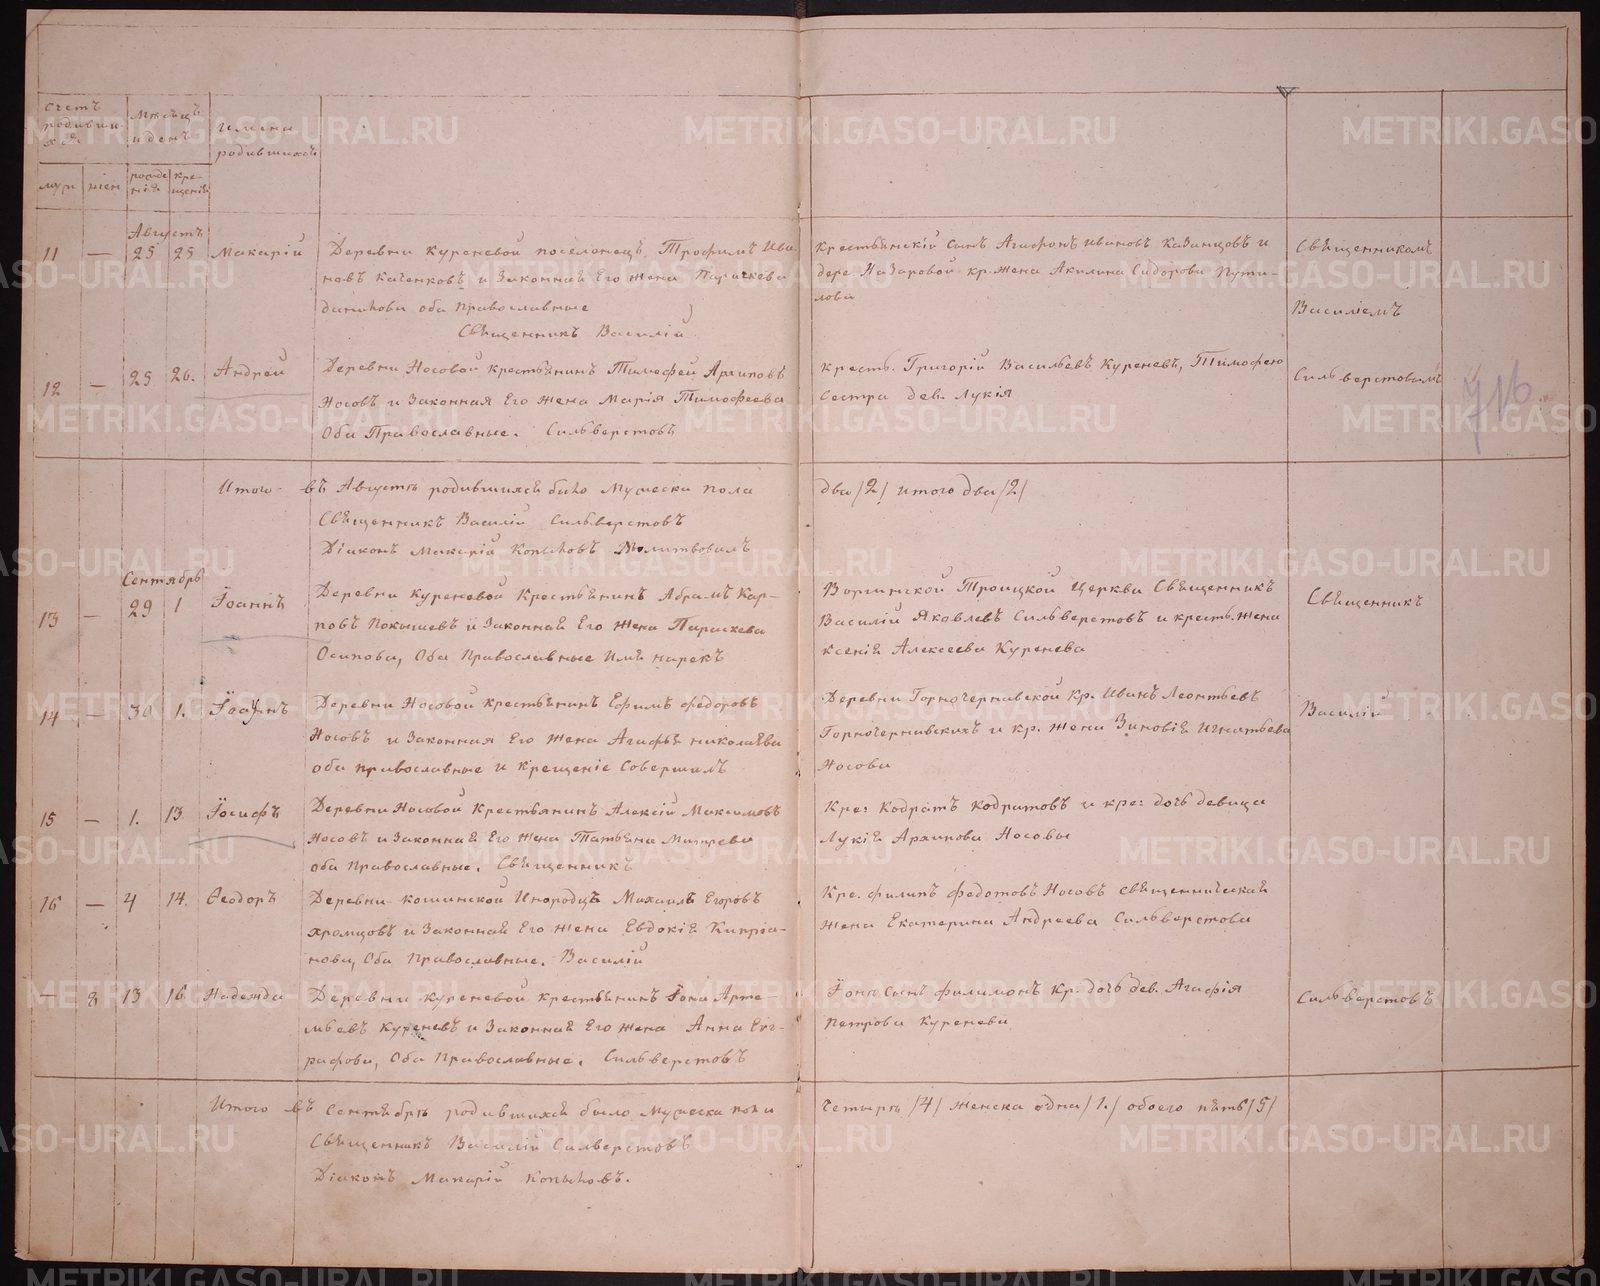 Счетъ родивших ся
Мѣсяцъ и день
имена родившихся
муж
жен
рожде нія
кре- щенія
Августъ
11 — 25 25 Макарій Деревни Куреневой поселенецъ, Трофимъ Ива крестьянскій сынъ Агафонъ Ивановъ Казанцовъ и Священникомъ
новъ Каченковъ и Законная Его жена Параскева дере. Назаровой кр. жена Акилина Сидорова Пути-
данилова оба Православные лова Василіемъ
Священникъ Василій
12 — 25 26. Андрей Деревни Носовой крестьянинъ Тимофей Архиповъ крестъ. Григорій Васильевъ Куреневъ, Тимофею Сильверстовымъ
Носовъ и Законная Его жена Марія Тимофеева Сестра дев. Лукія
Оба Православные. Сильверстовъ
Итого въ Августѣ родившихся было Мужеска пола два /2/ итого два /2/
Священникъ Василій Сильверстовъ
Діаконъ Макарій Копыловъ Молитвовалъ
Сентябрь
13 — 29 1 Іоаннъ Деревни Куреневой Крестьянинъ Абрамъ Кар- Троицкой Церкви Священникъ Священникъ
повъ Покышевъ и Законная Его жена Параскева Василій Яковлевъ Сильверстовъ и крестъ. жена
Осипова, Оба Православные Имя нарекъ Ксенія Алексеева Куренева
14 — 30 1. Іоаннъ Деревни Носовой крестьянинъ Ефимъ федоровъ Деревни Горночернавской Кр. Иванъ Леонтьевъ Василій
Носовъ и Законная Его жена Агафья николаева Горночернавскихъ и кр. жена Зиновія Игнатьева
оба православные и Крещеніе Совершилъ Носова
15 — 1. 13 Іосифъ Деревни Носовой Крестьянинъ Алексій Максимовъ Кре: Кодратъ Кодратовъ и кре: дочь девица
Носовъ и Законная Его жена Татьяна Митрева Лукія Архипова Носовы
оба Православные. Священникъ
16 — 4 14. Феодоръ Деревни Кошинской Инородецъ Михаилъ Егоровъ Кре. филипъ федотовъ Носовъ священническая
Хромцовъ и Законная Его жена Евдокія Кипріа- жена Екатерина Андреева Сильверстова
нова, Оба Православные. Василій
— 8 13 16 Надежда Деревни Куреневой крестьянинъ Іона Арте- Іоны Сынъ филимонъ кр. дочь дев. Агафія Сильверстовъ
мьевъ Куреневъ и Законная Его жена Анна Евг- петрова Куреневи
рафова, Оба Православные. Сильверстовъ
Итого въ Сентябрѣ родившихся было Мужеска пола четыре /4/ женска одна /1./ обоего пять /5/
Священникъ Василій Силверстовъ
Діаконъ Макарій Копыловъ.